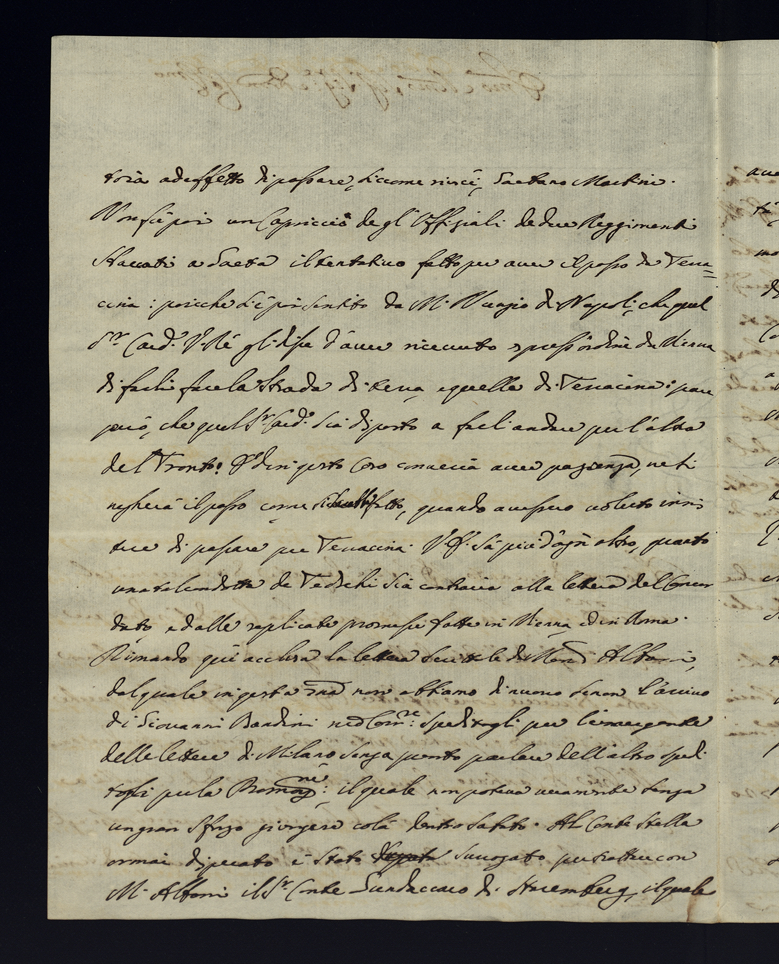 toria ad effetto di passare, siccome riuscì, Gaetano Martini.
Non fù poi un Capriccio degl'Uffiziali de due Reggimenti
staccati a Gaeta il tentativo fatto per aver il passo di Terra=
cina: poiche si è poi sentito da M.r Nunzio di Napoli, che quel
S.r Card.e V. Rè gli disse d'aver ricevuto espressi ordini da Vienna
di farli fare la Strada di terra, e quella di Terracina: pare
però, che quel S.r Card.e sia disposto a farli andare per l'altra
del Tronto: in questo Caso converrà aver pazienza, ne si
negherà il passo come fatto, quando avessero voluto insis
tere di passare per Terracina. V.E. sà più d'ogn'altro, quanto
una tal condotta de Tedeschi sia contraria alla lettera del Concor
dato, e dalle replicate promesse fatte in Vienna, ed in Roma.
Rimando quì acclusa la lettera scrittale di Mons.r
dal quale in questa non abbiamo di nuovo senon l'arrivo
di Giovanni Bandini speditogli per l'emergente
delle lettere di Milano senza punto parlare dell'altro spedi
tosi per la il quale non poteva veramente senza
un gran sforzo giungere colà dentro Sabato. Al Conte Stella
ormai disperato è stato surrogato per trattare con
M.r il S.r Conte Gundaccaro di Staremberg, il quale